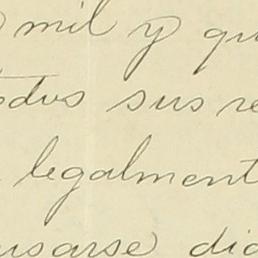 mil y qu
odos sus re
legalment
usarse dia